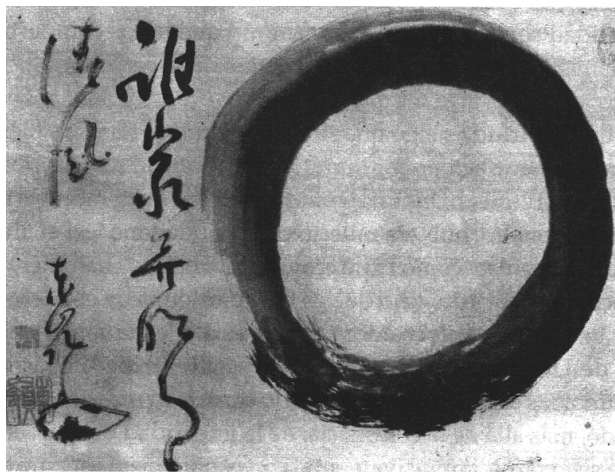 誰家無明月
清風